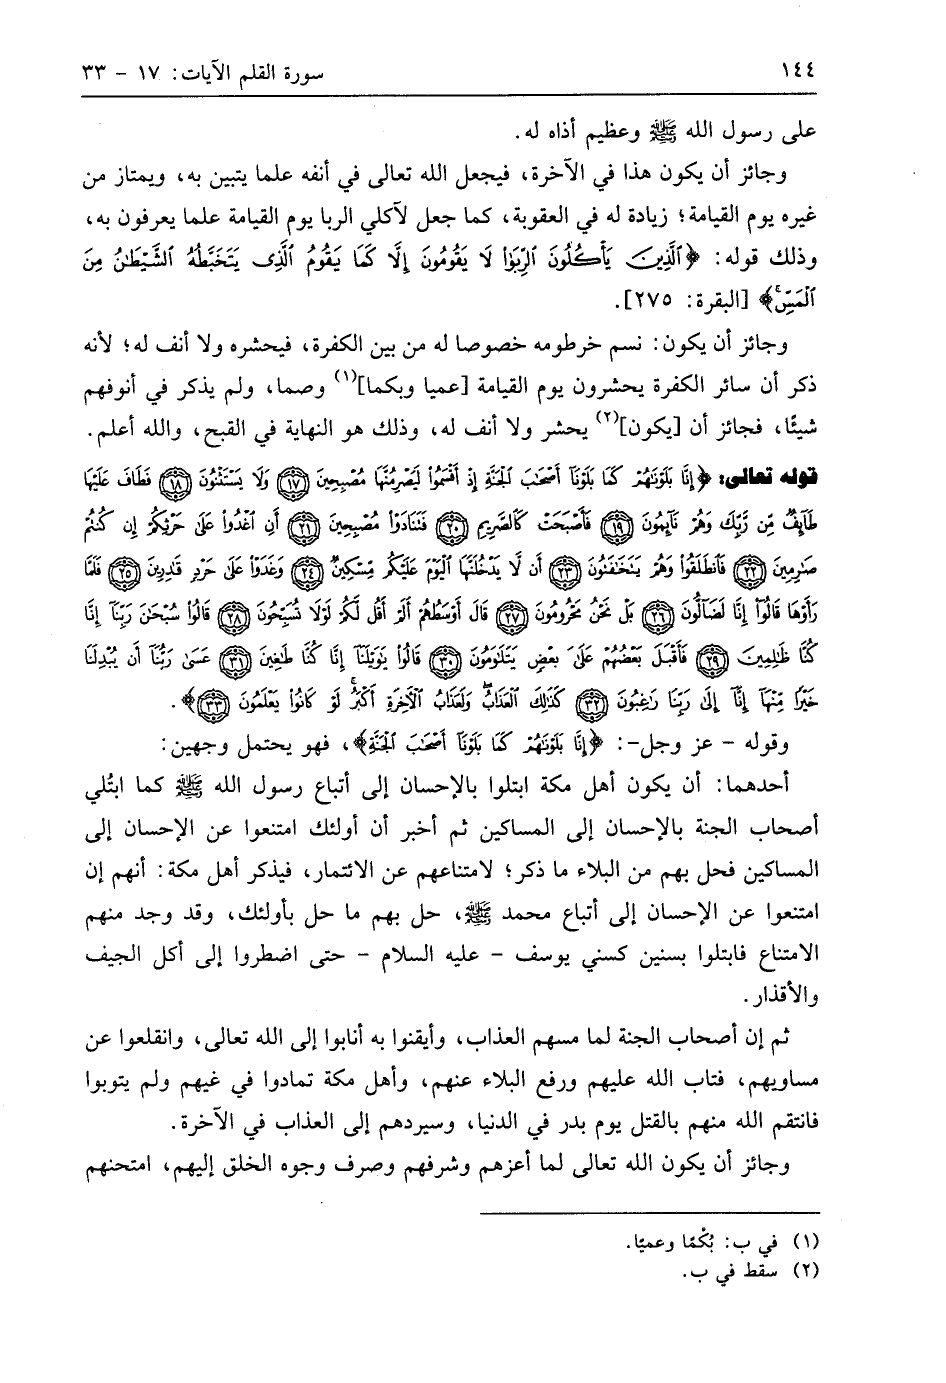 ١٤٤ سورة القلم الآيات: ١٧ - ٣٣
على رسول الله ﷺ وعظيم أذاه له.
وجائز أن يكون هذا في الآخرة، فيجعل الله تعالى في أنفه علما يتبين به، ويمتاز من
غيره يوم القيامة؛ زيادة له في العقوبة، كما جعل لآكلي الربا يوم القيامة علما يعرفون به،
وذلك قوله: ﴿ٱلَّذِينَ يَأْكُلُونَ ٱلرِّبَوٰا۟ لَا يَقُومُونَ إِلَّا كَمَا يَقُومُ ٱلَّذِى يَتَخَبَّطُهُ ٱلشَّيْطَـٰنُ مِنَ
ٱلْمَسِّ﴾ [البقرة: ٢٧٥].
وجائز أن يكون: نسم خرطومه خصوصا له من بين الكفرة، فيحشره ولا أنف له؛ لأنه
ذكر أن سائر الكفرة يحشرون يوم القيامة [عميا وبكما](١) وصما، ولم يذكر في أنوفهم
شيئًا، فجائز أن [يكون](٢) يحشر ولا أنف له، وذلك هو النهاية في القبح، والله أعلم.
قوله تعالى: ﴿إِنَّا بَلَوْنَـٰهُمْ كَمَا بَلَوْنَآ أَصْحَـٰبَ ٱلْجَنَّةِ إِذْ أَقْسَمُوا۟ لَيَصْرِمُنَّهَا مُصْبِحِينَ ﴿١٧﴾ وَلَا يَسْتَثْنُونَ ﴿١٨﴾ فَطَافَ عَلَيْهَا
طَآئِفٌ مِّن رَّبِّكَ وَهُمْ نَآئِمُونَ ﴿١٩﴾ فَأَصْبَحَتْ كَٱلصَّرِيمِ ﴿٢٠﴾ فَتَنَادَوْا۟ مُصْبِحِينَ ﴿٢١﴾ أَنِ ٱغْدُوا۟ عَلَىٰ حَرْثِكُمْ إِن كُنتُمْ
صَـٰرِمِينَ ﴿٢٢﴾ فَٱنطَلَقُوا۟ وَهُمْ يَتَخَـٰفَتُونَ ﴿٢٣﴾ أَن لَّا يَدْخُلَنَّهَا ٱلْيَوْمَ عَلَيْكُم مِّسْكِينٌ ﴿٢٤﴾ وَغَدَوْا۟ عَلَىٰ حَرْدٍ قَـٰدِرِينَ ﴿٢٥﴾ فَلَمَّا
رَأَوْهَا قَالُوٓا۟ إِنَّا لَضَآلُّونَ ﴿٢٦﴾ بَلْ نَحْنُ مَحْرُومُونَ ﴿٢٧﴾ قَالَ أَوْسَطُهُمْ أَلَمْ أَقُل لَّكُمْ لَوْلَا تُسَبِّحُونَ ﴿٢٨﴾ قَالُوا۟ سُبْحَـٰنَ رَبِّنَآ إِنَّا
كُنَّا ظَـٰلِمِينَ ﴿٢٩﴾ فَأَقْبَلَ بَعْضُهُمْ عَلَىٰ بَعْضٍ يَتَلَـٰوَمُونَ ﴿٣٠﴾ قَالُوا۟ يَـٰوَيْلَنَآ إِنَّا كُنَّا طَـٰغِينَ ﴿٣١﴾ عَسَىٰ رَبُّنَآ أَن يُبْدِلَنَا
خَيْرًا مِّنْهَآ إِنَّآ إِلَىٰ رَبِّنَا رَٰغِبُونَ ﴿٣٢﴾ كَذَٰلِكَ ٱلْعَذَابُ وَلَعَذَابُ ٱلْـَٔاخِرَةِ أَكْبَرُ لَوْ كَانُوا۟ يَعْلَمُونَ ﴿٣٣﴾﴾.
وقوله - عز وجل-: ﴿إِنَّا بَلَوْنَـٰهُمْ كَمَا بَلَوْنَآ أَصْحَـٰبَ ٱلْجَنَّةِ﴾، فهو يحتمل وجهين:
أحدهما: أن يكون أهل مكة ابتلوا بالإحسان إلى أتباع رسول الله ﷺ كما ابتُلي
أصحاب الجنة بالإحسان إلى المساكين ثم أخبر أن أولئك امتنعوا عن الإحسان إلى
المساكين فحل بهم من البلاء ما ذكر؛ لامتناعهم عن الائتمار، فيذكر أهل مكة: أنهم إن
امتنعوا عن الإحسان إلى أتباع محمد ﷺ، حل بهم ما حل بأولئك، وقد وجد منهم
الامتناع فابتلوا بسنين كسني يوسف - عليه السلام - حتى اضطروا إلى أكل الجيف
والأقذار.
ثم إن أصحاب الجنة لما مسهم العذاب، وأيقنوا به أنابوا إلى الله تعالى، وانقلعوا عن
مساويهم، فتاب الله عليهم ورفع البلاء عنهم، وأهل مكة تمادوا في غيهم ولم يتوبوا
فانتقم الله منهم بالقتل يوم بدر في الدنيا، وسيردهم إلى العذاب في الآخرة.
وجائز أن يكون الله تعالى لما أعزهم وشرفهم وصرف وجوه الخلق إليهم، امتحنهم
(١) في ب: بُكْمًا وعميًا.
(٢) سقط في ب.